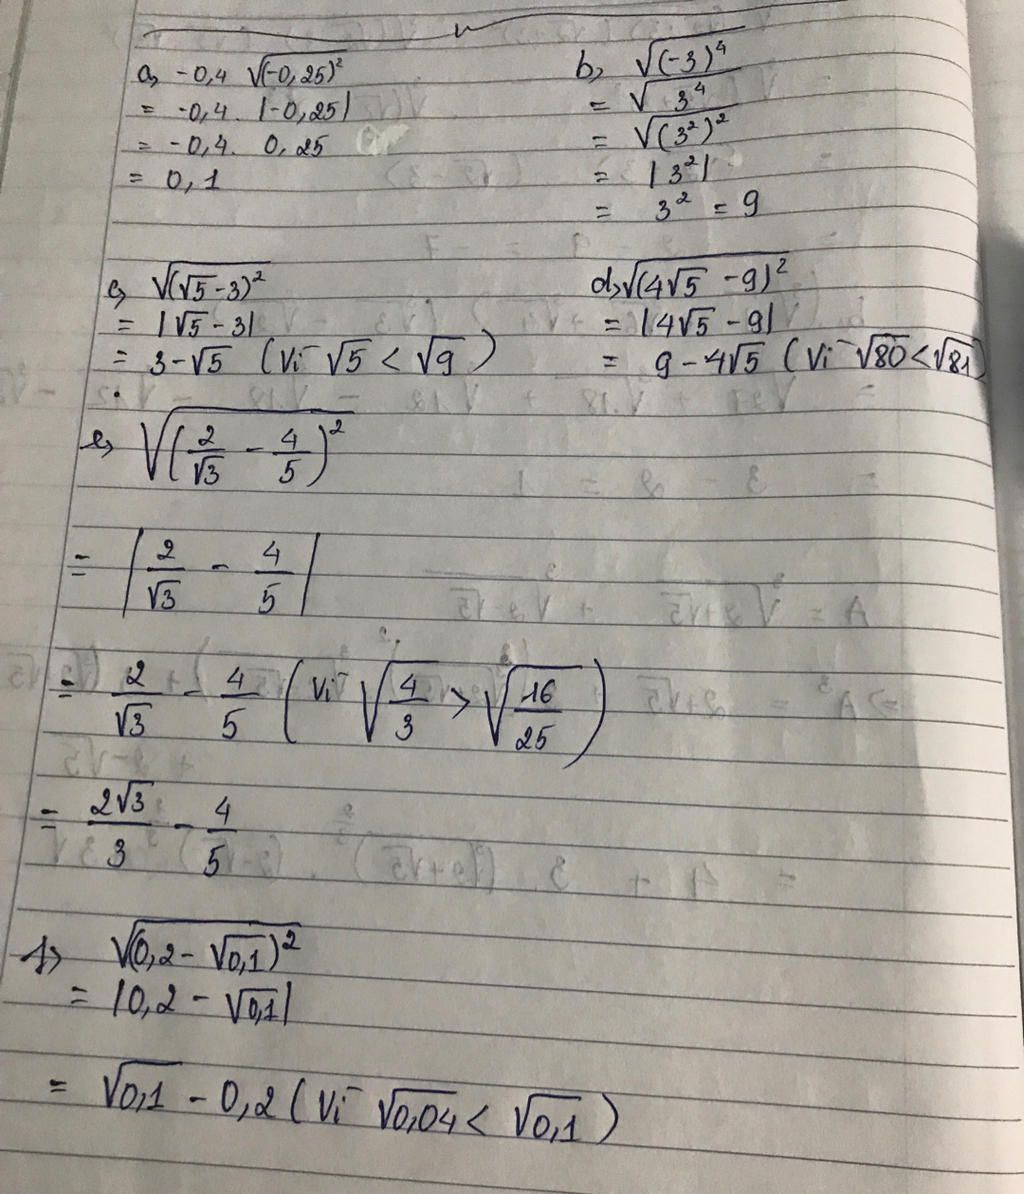 a, -0,4 √(-0,25)²
= -0,4. |-0,25|
= -0,4. 0,25
= 0,1
b, √(-3)⁴
= √3⁴
= √(3²)²
= |3²|
= 3² = 9
c, √(√5-3)²
= |√5-3|
= 3-√5 (Vì √5 < √9)
d, √(4√5 -9)²
= |4√5 -9|
= 9-4√5 (Vì √80 < √81)
e, √(2/√3 - 4/5)²
= |2/√3 - 4/5|
= 2/√3 - 4/5 (Vì √4/3 > √16/25)
= 2√3/3 - 4/5
f, √(0,2-√0,1)²
= |0,2-√0,1|
= √0,1 -0,2 (Vì √0,04 < √0,1)